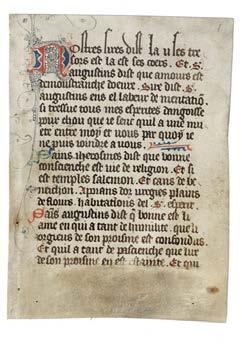 Nostres sires dist la u li es tre
sors est la est ses coers. Et .S.
augustins dist que amours est
demoustranche doeure. Sire dist .S.
augustins ens el labeur de mentatiō.
si tressue tous mes esperites dangoisse
pour chou que ie senc quil a une mu
ete entre moy et vous par quoy ie
ne puis venir a vous.
Sains iherosmes dist que bonne
conscienche est vie de religion. Et si
est temples salemon. Et cans de be
neichon. Aponans dor vregies plains
de flours. habitations del .S. esperit.
Sains augustins dist q̄ bonne est li
ame en qui a tant de humilite. que li
orgieus de son proisme est confondus
Et quil a tant de pascienche que lire
de son proisme en est estainte. Et qui